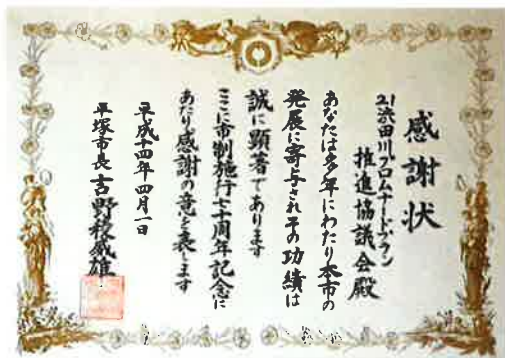 感謝状
21渋田川プロムナードプラン
推進協議会殿
あなたは多年にわたり本市の
発展に寄与されその功績は
誠に顕著であります
ここに市制施行七十周年記念に
あたり感謝の意を表します
平成十四年四月一日
平塚市長 吉野稜威雄